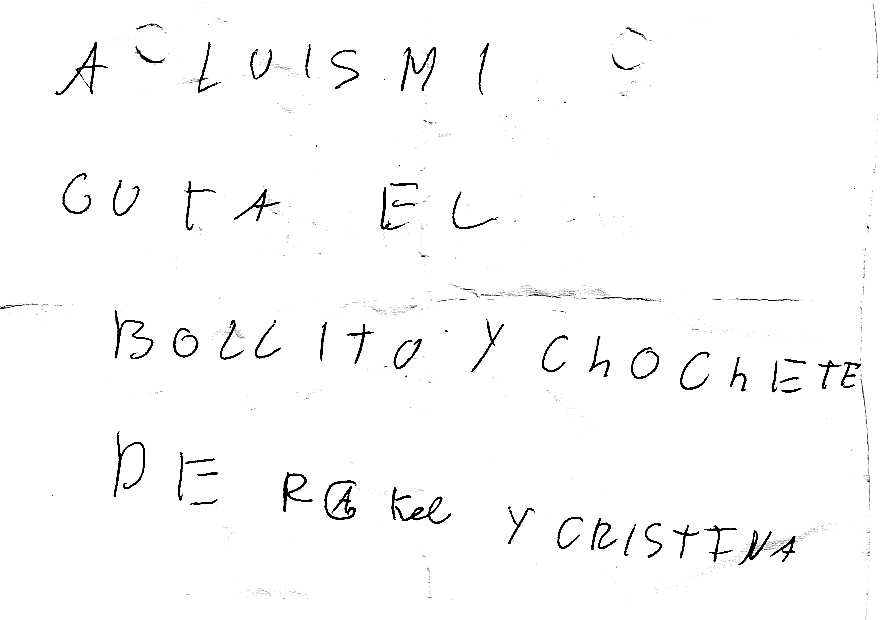 A LUISMI
GUTA EL
BOLLITO Y ChOChETE
DE RAkel Y CRISTINA